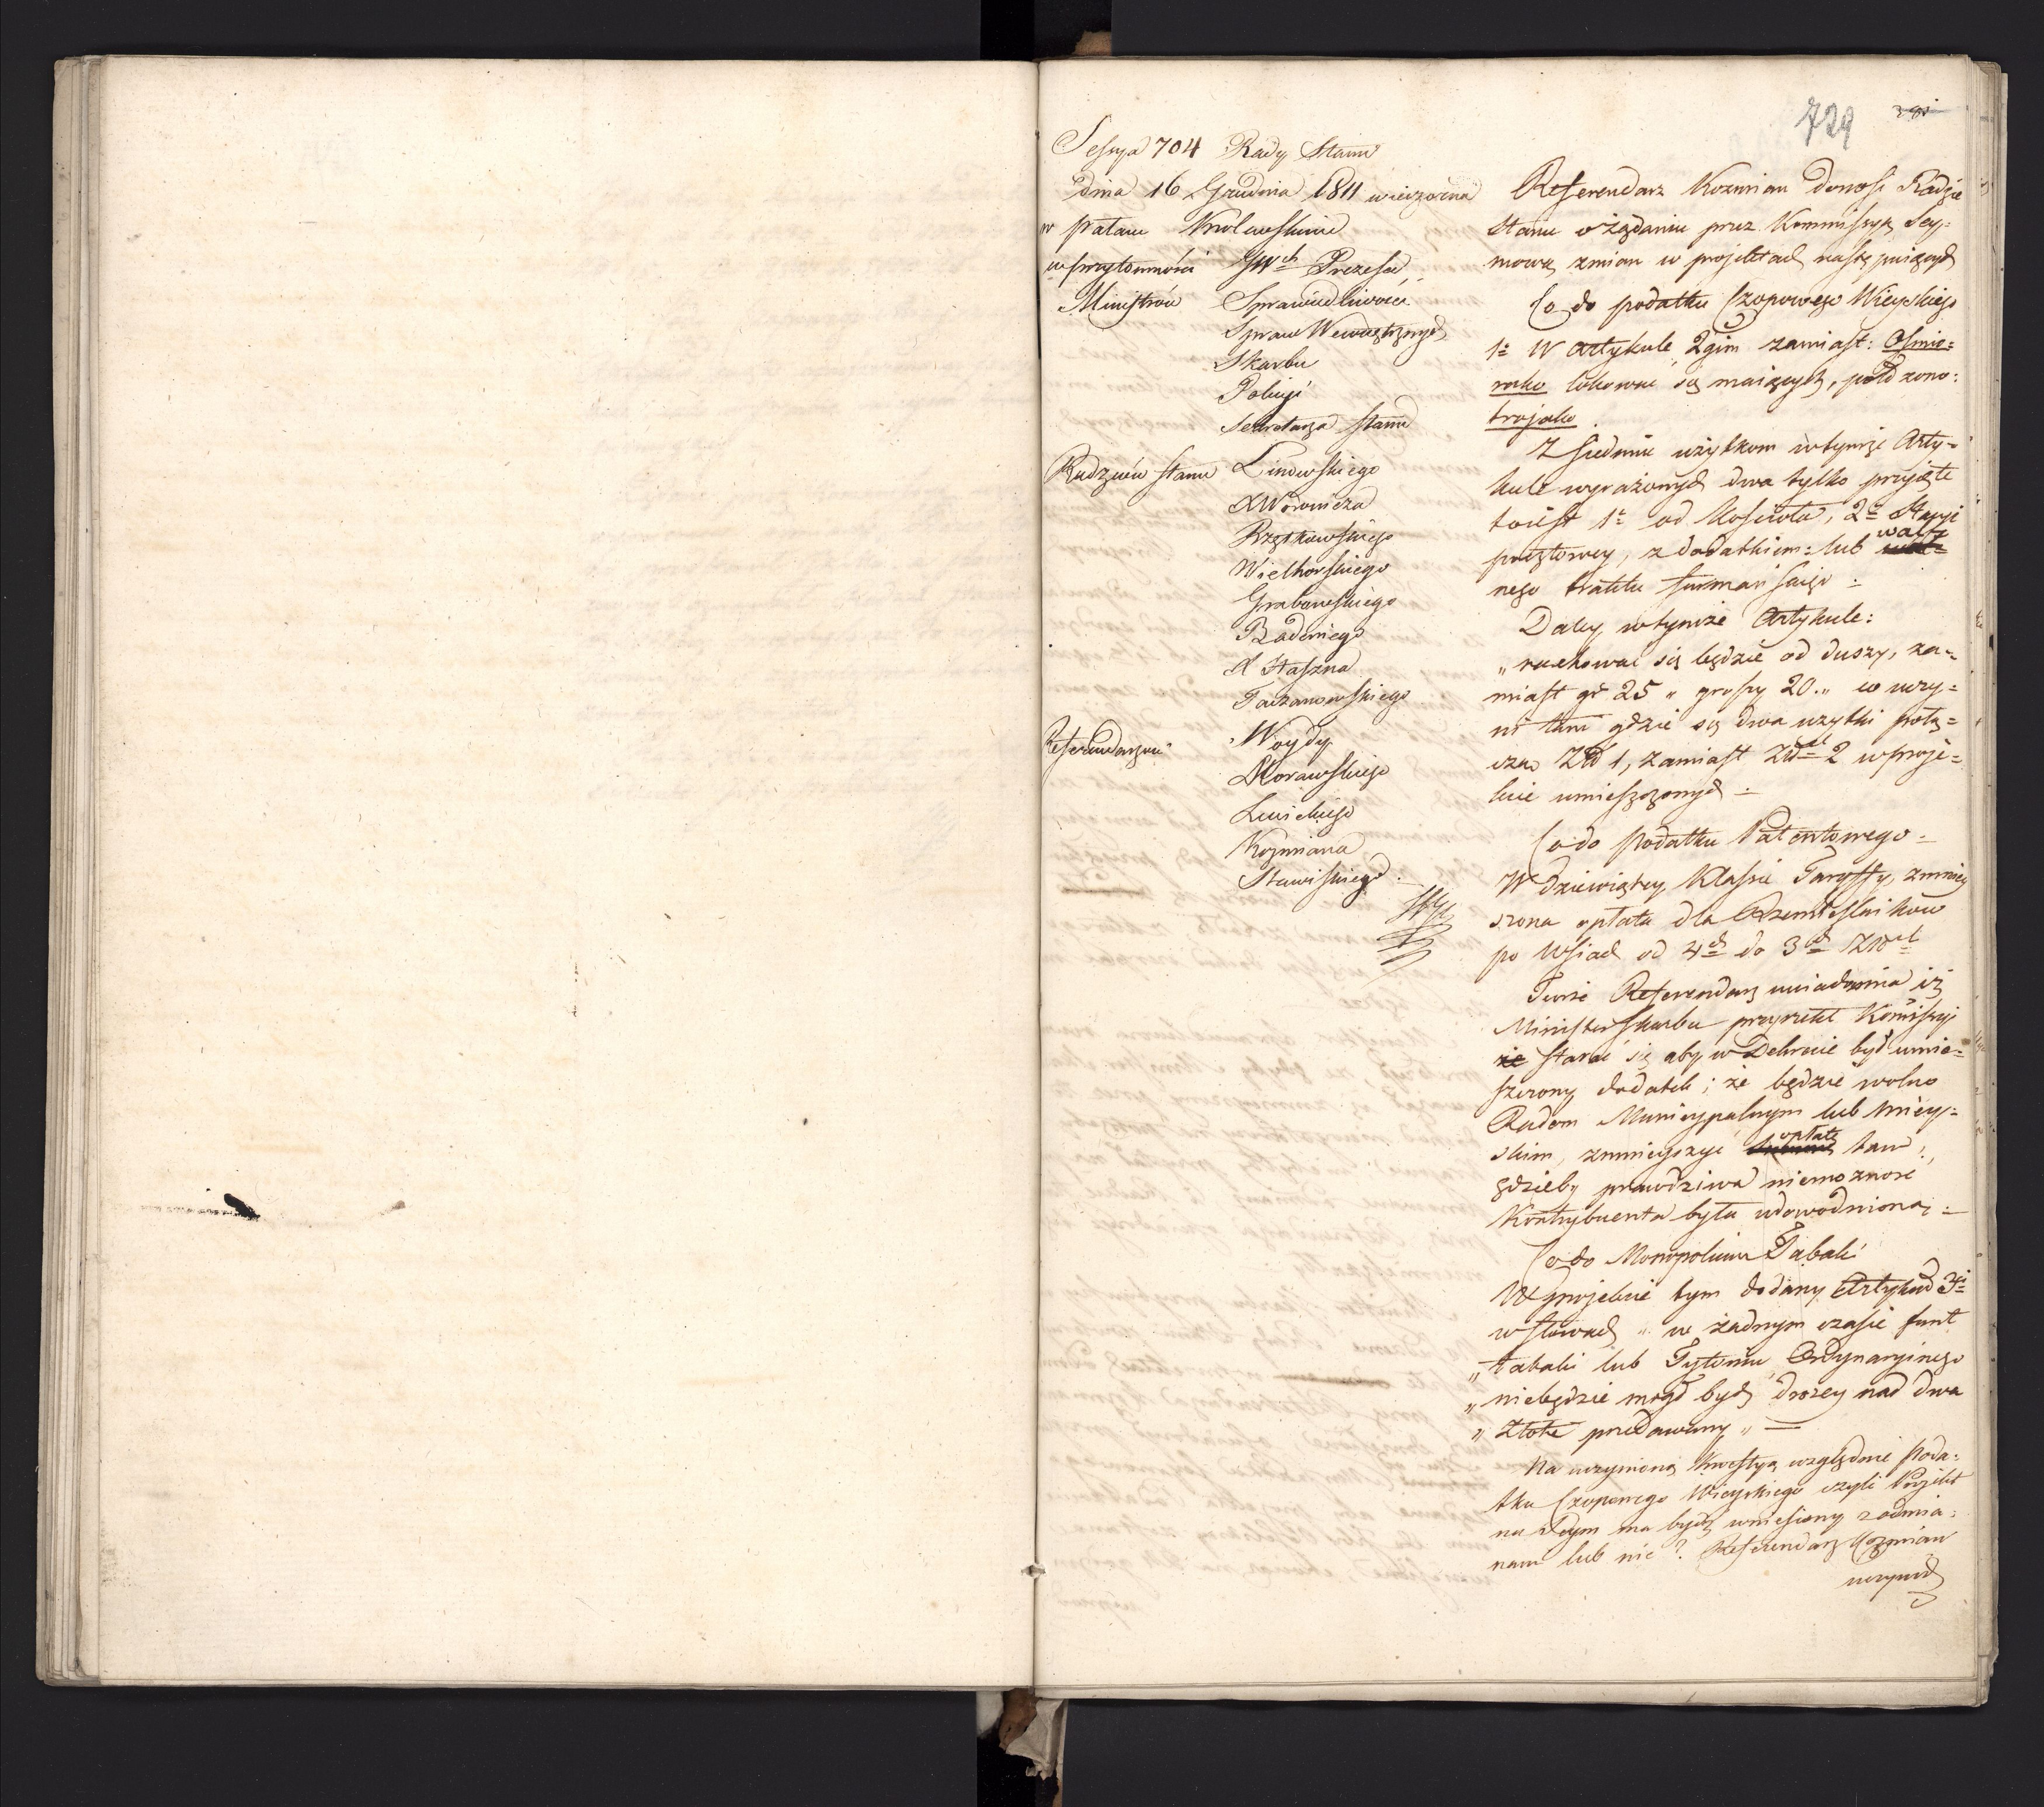 729
Sessya 704 Rady Stanu
dnia 16 Grudnia 1811 wieczorna
w pałacu Królewskim
w przytomności JWch Prezesa
Ministrów Sprawiedliwości
Spraw Wewnętrznych
Skarbu
Policyi
Sekretarza Stanu
Radzców stanu Linowskiego
X Woronicza
Rzętkowskiego
Wielhorskiego
Grabowskiego
Badeniego
X Staszica
Taczanowskiego
Referendarzów Woydy
Morawskiego
Lewickiego
Koźmiana
Stawiskiego
Referendarz Kozmian donosi Radzie
Stanu o żądaniu przez Kommissyą Sey=
mową zmian w projektach następuiących
Co do podatku Czopowego Wieyskiego
1o W Artykule 2gim zamiast: Ośmio=
rako lokować się maiących, położono:
trojako.
Z siedmiu użytkow w tymże Arty=
kule wyrażonych dwa tylko przyięte
to iest 1o od Kościoła, 2o Stacyi
pocztowey, z dodatkiem: lub waż=
nego traktu furmańskiego.
Daley w tymże Artykule:
„rachować się będzie od duszy, za=
miast gr 25 „groszy 20.„ co uczy=
ni tam gdzie się dwa użytki połą=
czą Zł 1, zamiast Złch 2 w proje=
kcie umieszczonych.
Co do podatku Patentowego
W dziewiątey Klassie Taryffy, zmniey
szona opłata dla Rzemieślnikow
po Wsiach od 4ch do 3ch Złot
Tenże Referendarz uwiadomia iż
Minister Skarbu przyrzekł Komissyi
że starać się aby w Dekrecie był umie=
szczony dodatek; że będzie wolno
Radom Municypalnym lub Miey=
skim, zmnieyszyć opłatę tam,
gdzieby prawdziwa niemożność
Kontrybuenta była udowodnioną.
Co do Monopolium Tabaki
W projekcie tym dodany Artykuł 3i
w słowach „w żadnym czasie funt
„tabaki lub Tytoniu Ordynaryinego
„niebędzie mogł bydź drożey nad dwa
„Złote przedawany„
Na uczynioną kwestyą względnie Poda=
tku Czopowego Wieyskiego czyli Projekt
na Seym ma bydź wniesiony z odmia=
nami lub nie? Referendarz Kozmian
uczynił